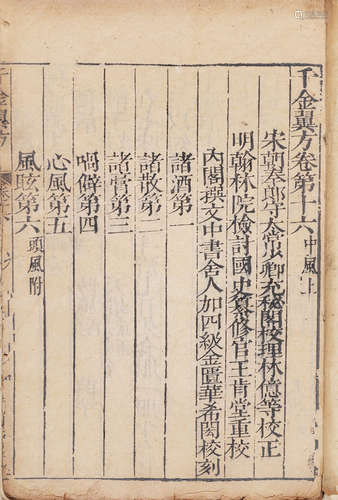 千金翼方卷第十六 中風上
宋朝奉郎守太常少卿充秘閣校理林億等校正
明翰林院檢討國史纂修官王肯堂重校
內閣撰文中書舍人加四級金匱華希閎校刻
諸酒第一
諸散第二
諸膏第三
喎僻第四
心風第五
風眩第六 頭風附
千金翼方